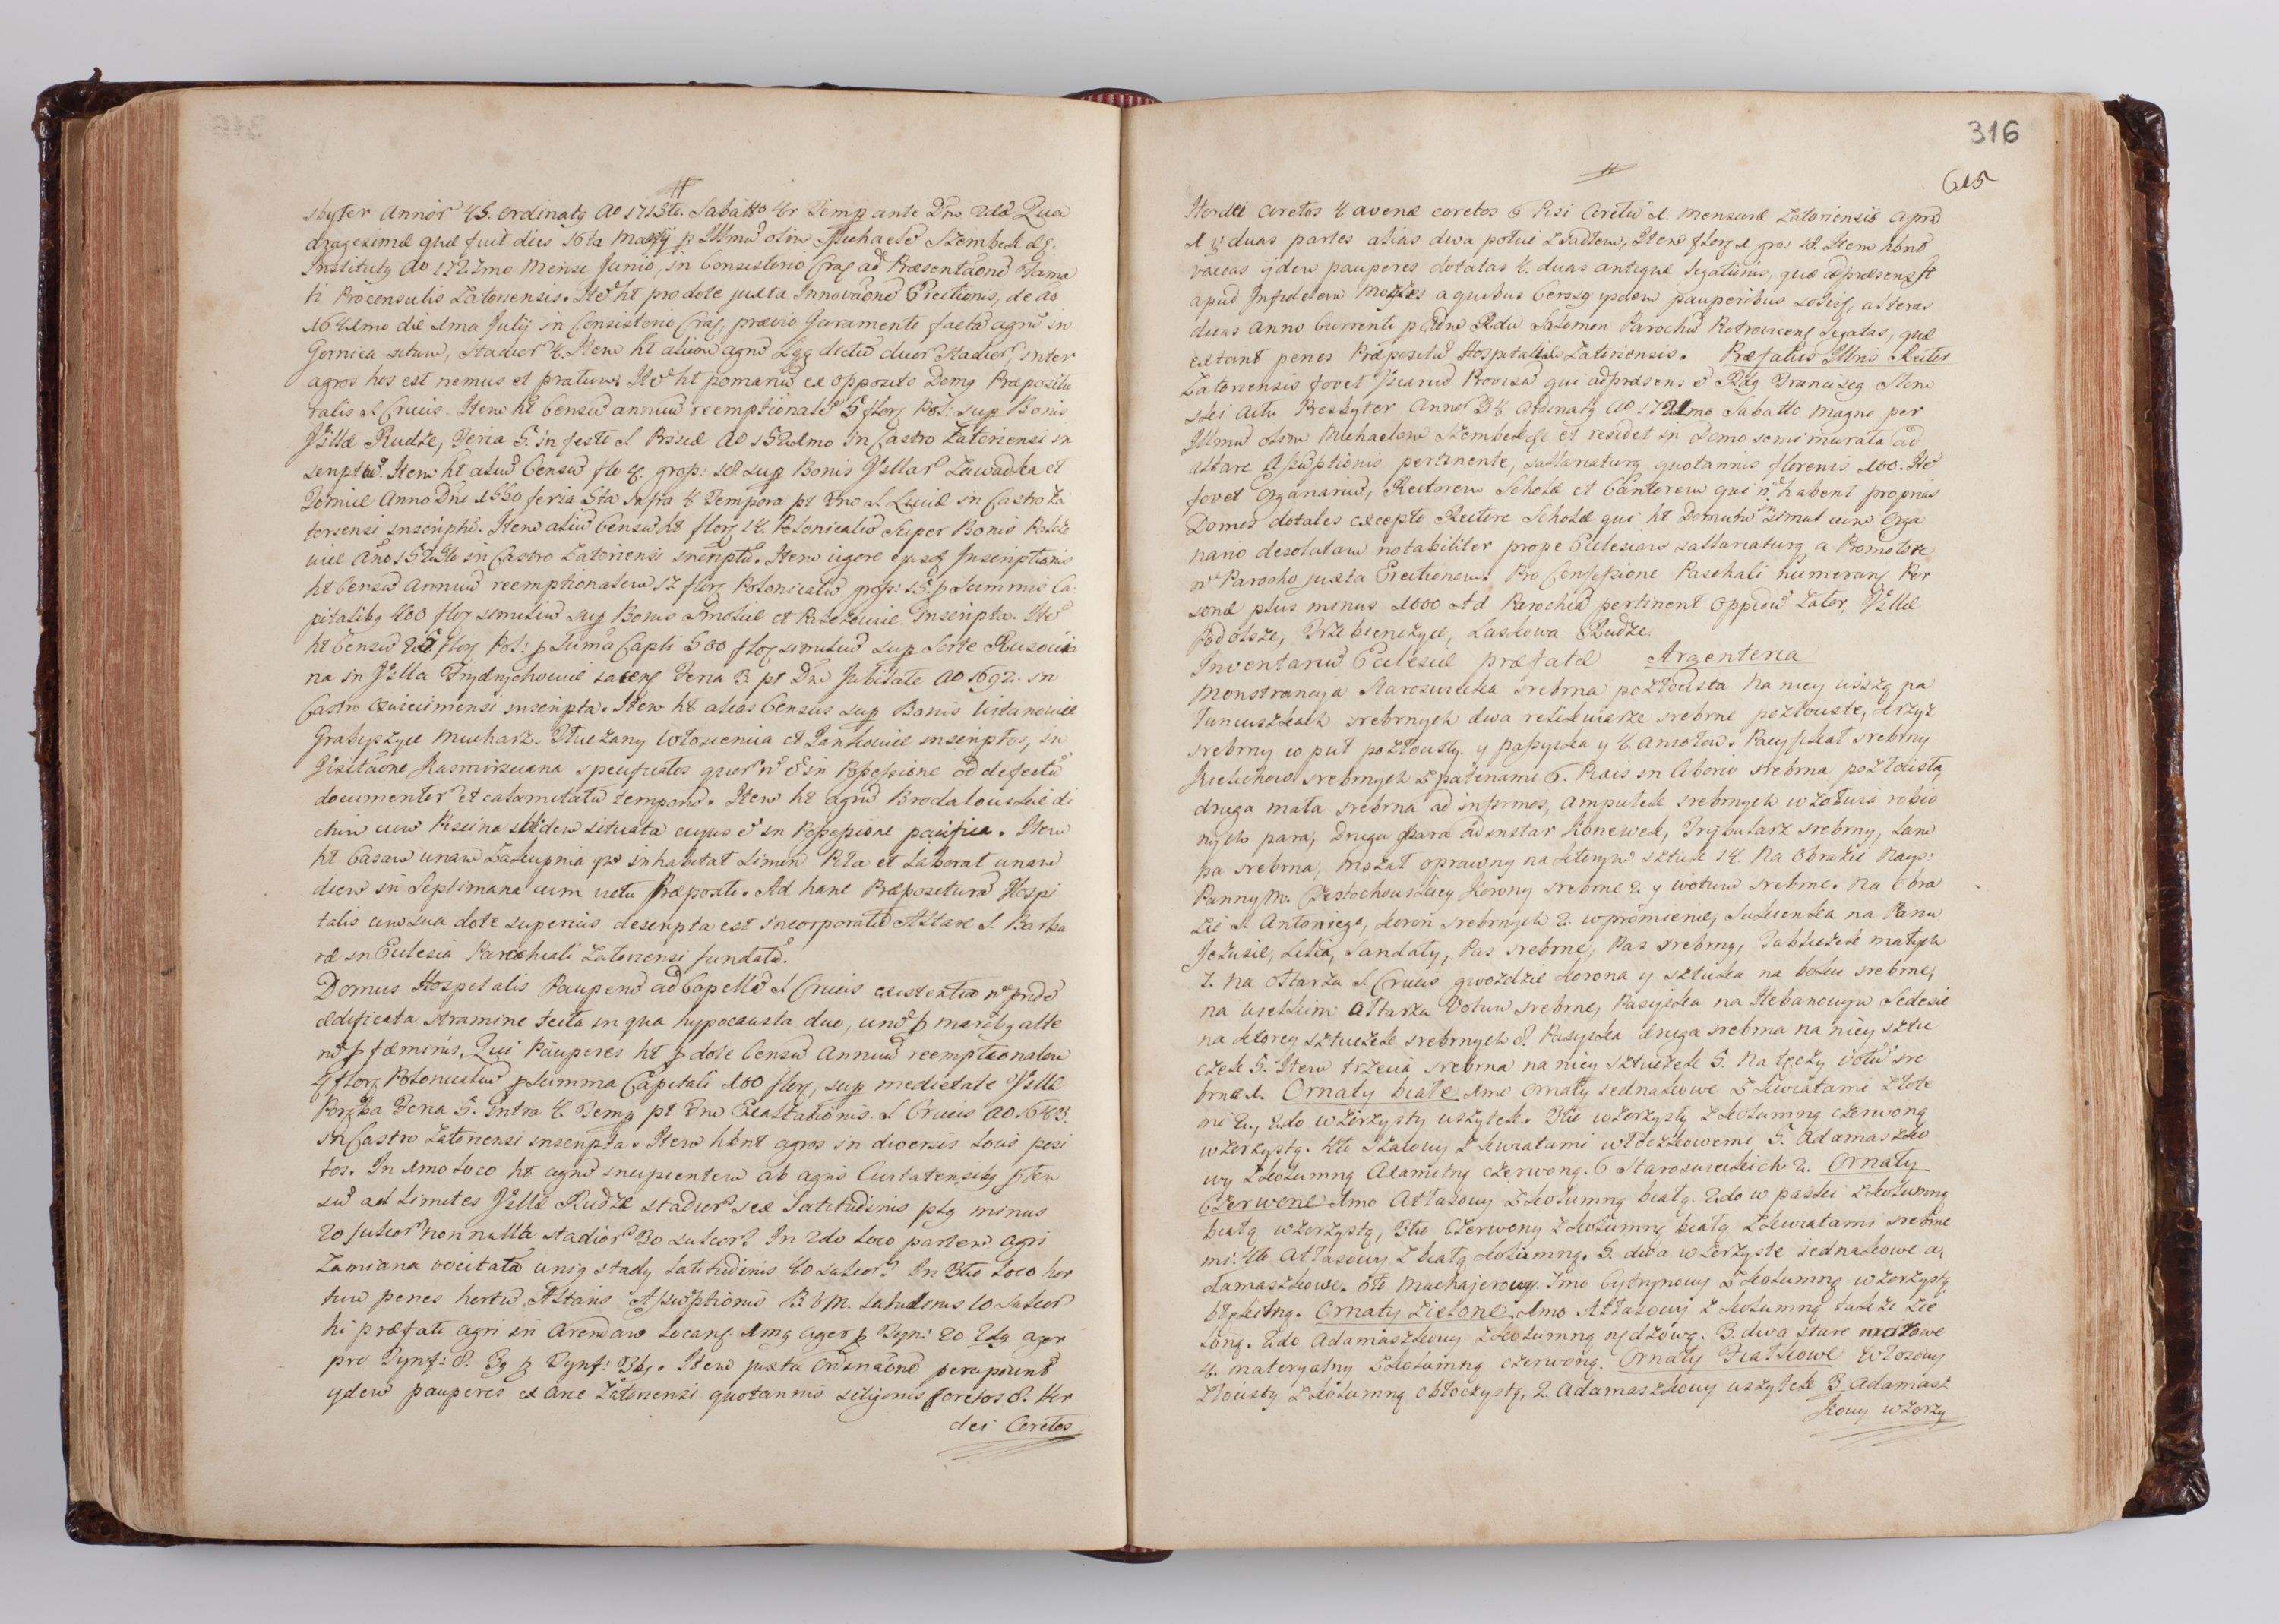 sbyter Annor 45. Ordinatg Ao 1715to. Sabatto 4r Temp ante Dno 2da Qua
dragesimæ quæ fuit dies 16ta Martij p Illmu olim Michaele Szembek
Institutg Ao 1727mo Mense Junio, in Consistorio Crac ad Præsentaone Fama
ti Proconsulis Zatoriensis. Ite ht pro dote juxta Innovaone Erectionis, de Ao
1641mo die 1ma Julij in Consistorio Crac, prævio Juramento facta agru in
Gornica situm, Stadior 4. Item ht alium agru Łęg dictu duor Stadior, inter
agros hos est nemus et pratum. Ite ht pomariu ex opposito Domg Præpositu
ralis S Crucis. Item ht Censu annuu reemptionale 5 flor Pol: sup Bonis
Villæ Rudze, Feria 5. in festo S Priscæ Ao 1521mo in Castro Zatoriensi in
scriptu. Item ht aliu Censu flo 4. gros: 12 sup Bonis Villar Zawadka et
Tomice Anno Dni 1550 feria 5ta infra 4 Tempora pt Fm S Luciæ in Castro Za
toriensi inscriptu. Item aliu Censu ht flor 14. Polonicaliu Super Bonis
Ano in Castro Zatoriensi inscriptu. Item vigore ejusd Inscriptionis
ht Censu Annuu reemptionalem 17 flor Polonicaliu gros: 15. p Summis Ca
pitalibg 400 flor similiu sup Bonis Smolice et Palczowice inscripta. Ite
ht Censu flor Pol: p Suma Capli 500 flor similiu sup Sorte Rusoci
na in Villa Frydrychowice jacen Feria 3 pt Dni Jubilate Ao 1692. in
Castro Osviecimensi inscripta. Item ht alios Census sup Bonis Witanowice
Graboszyce Mucharz. Tłuczany Włosienica et Jankowice inscriptos, in
Visitaone Kazimirsciana specificatos quor n e in Possessione ob defectu
documentor et calamitatu temporu. Item ht agru Brodalouskie di
ctum cum Piscina ibidem situata cujus e in Possessione pacifica. Item
ht Casam unam Zakupnia qm inhabitat Simon Pita et laborat unam
diem in Septimana cum victu Præpositi. Ad hanc Præposituru Hospi
talis cum sua dote superius descripta est incorporatu Altare S. Barba
ræ in Ecclesia Parochiali Zatoriensi fundatu.
Domus Hospitalis Pauperu ad Capella S Crucis existentiu n pride
ædificata stramine tecta in qua hypocausta duo, unu p maribg alte
ru p fæminis, Qui Pauperes ht p dote Censu Annuu reemptionalem
4 flor Polonicaliu p Summa Capitali 100 flor, sup medietate Villæ
Poręba Feria 5. Intra 4 Temp pt Fm Exaltationis S Crucis Ao 1643.
in Castro Zatoriensi inscripta. Item hbnt agros in diversis locis posi
tos. In 1mo loco ht agru incipientem ab agris Civitatensibg
su ad limites Villæ Rudze stadior sex latitudinis plg minus
20 sulcor nonnulla stadior 30 sulcor. In 2do loco partem agri
Zamiana vocitata unig stady latitudinis 40 sulcor. In 3tio loco hor
tum penes hortu Altaris Assuptionis B.V.M. latudinis 10 sulcor
hi præfati agri in Arendam locanf. 1mg ager p Tynf: 20 2dg ager
pro Tynf: 8. 3g p Tynf: Item juxta Ordinaone percipiunt
ydem pauperes ex Arce Zatoriensi quotannis siliginis Coretos 8. Hor
dei Coretos
316
615
Hordei Coretos 4 avenæ coretos 6 Pisi Coretu 1. mensuræ Zatoriensis
duas partes alias dwa potcie z sadłem, Item flor 1 gro: 12 Item hbnt
vaccas ijdem pauperes dotatas 4. duas antiquæ legationis, quæ adpræsens st
apud Infidelem a quibus pauperibus alteras
duas Anno Currenti p Salomon Parochu legatas, quæ
extant penes Præpositu Hospitalis Zatoriensis. Præfatus Illris Rector
Zatoriensis fovet Vicariu Provisu qui adpræsens e Rdg Franciscg
ski Actu Presbyter Annor 34 Ordinatg Ao 1721mo Sabatto Magno per
Illmu olim Michaelem Szembek et residet in Domo semimurata ad
altare Assuptionis pertinente, sallariaturg quotannis florenis 100. Ite
fovet Organariu, Rectorem Scholæ et Cantorem qui n habent proprias
Domos dotales excepto Rectore Scholæ qui ht Domum simul cum Orga
nario desolatam notabiliter prope Ecclesiam sallariaturg a Promotore
Parocho juxta Erectionem. Pro Confessione Paschali numeranf Per
sonæ plus minus 1000 Ad Parochia pertinent Oppidu Zator, Villæ
Podolsze, Trzebienczyce, Laskowa Rudze.
Inventariu Ecclesiæ præfatæ Argenteria
Monstrancya Staroswiecka srebrna pozłocista na niey wiszą na
łancuszkach srebrnych dwa relikwiarze srebrne pozłociste, Krzyż
srebrny w puł pozłocisty y passyjka y 4. Aniołow. Pacyfikał srebrny
Kielichow srebrnych z patenami 6. Puxis in Ciborio srebrna pozłocista,
druga mała srebrna ad infirmos, Ampułek srebrnych robio
nych para, Druga para ad instar konewek, Trybularz srebrny, Lam
pa srebrna, Mszał oprawny na ktorym sztuk 14. Na Obrazie Nays:
Panny M. Częstochouskiey Korony srebrne 2. y wotum srebrne. Na Obra
zie S. Antoniego, koron srebrnych 2. w promienie, Sukienka na Panu
Jezusie, Lilia, Sandały, Pas srebrne, Pas srebrny, Tabliczek małych
7. Na Ołtarzu S Crucis gwozdzie korona y sztuka na boku srebrne,
na wielkim Ołtarzu Votum srebrne, Pasyjka na Hebanowym Sedesie
na ktorey sztuczek srebrnych 8. Pasyjka druga srebrna na niey sztu
czek 5. Item trzecia srebrna na niey sztuczek 5. Na tęczy votu sre
brne 1. Ornaty białe 1mo ornaty jednakowe z kwiatami złote
mi 2., 2do wzorzysty uszytek. 3tio wzorzysty z kolumną czerwoną
wzorzystą. 4to Szalowy z kwiatami włoczkowemi 5. Adamaszko
wy z kolumną Adamitną czerwoną. 6 Staroswieckich 2. Ornaty
Czerwone 1mo Atłasowy z kolumną białą. 2do w paski z kolumną
białą wzorzystą, 3tio Czerwony z kolumną białą z kwiatami srebrne
mi. 4to Atłasowy z białą kolumną. 5. dwa wzorzyste jednakowe a
damaszkowe. 6to Muchajerowy. 7mo Cytrynowy z kolumną wzorzystą
błękitną. Ornaty Zielone. 1mo Atłasowy z kolumną także zie
loną. 2do Adamaszkowy z kolumną rydzową. 3. dwa stare
4. materyalny z kolumną czerwoną. Ornaty Fiałkowe 
złocisty z kolumną obłoczystą, 2. Adamaszkowy uszytek 3 Adamasz
kowy wzorzy